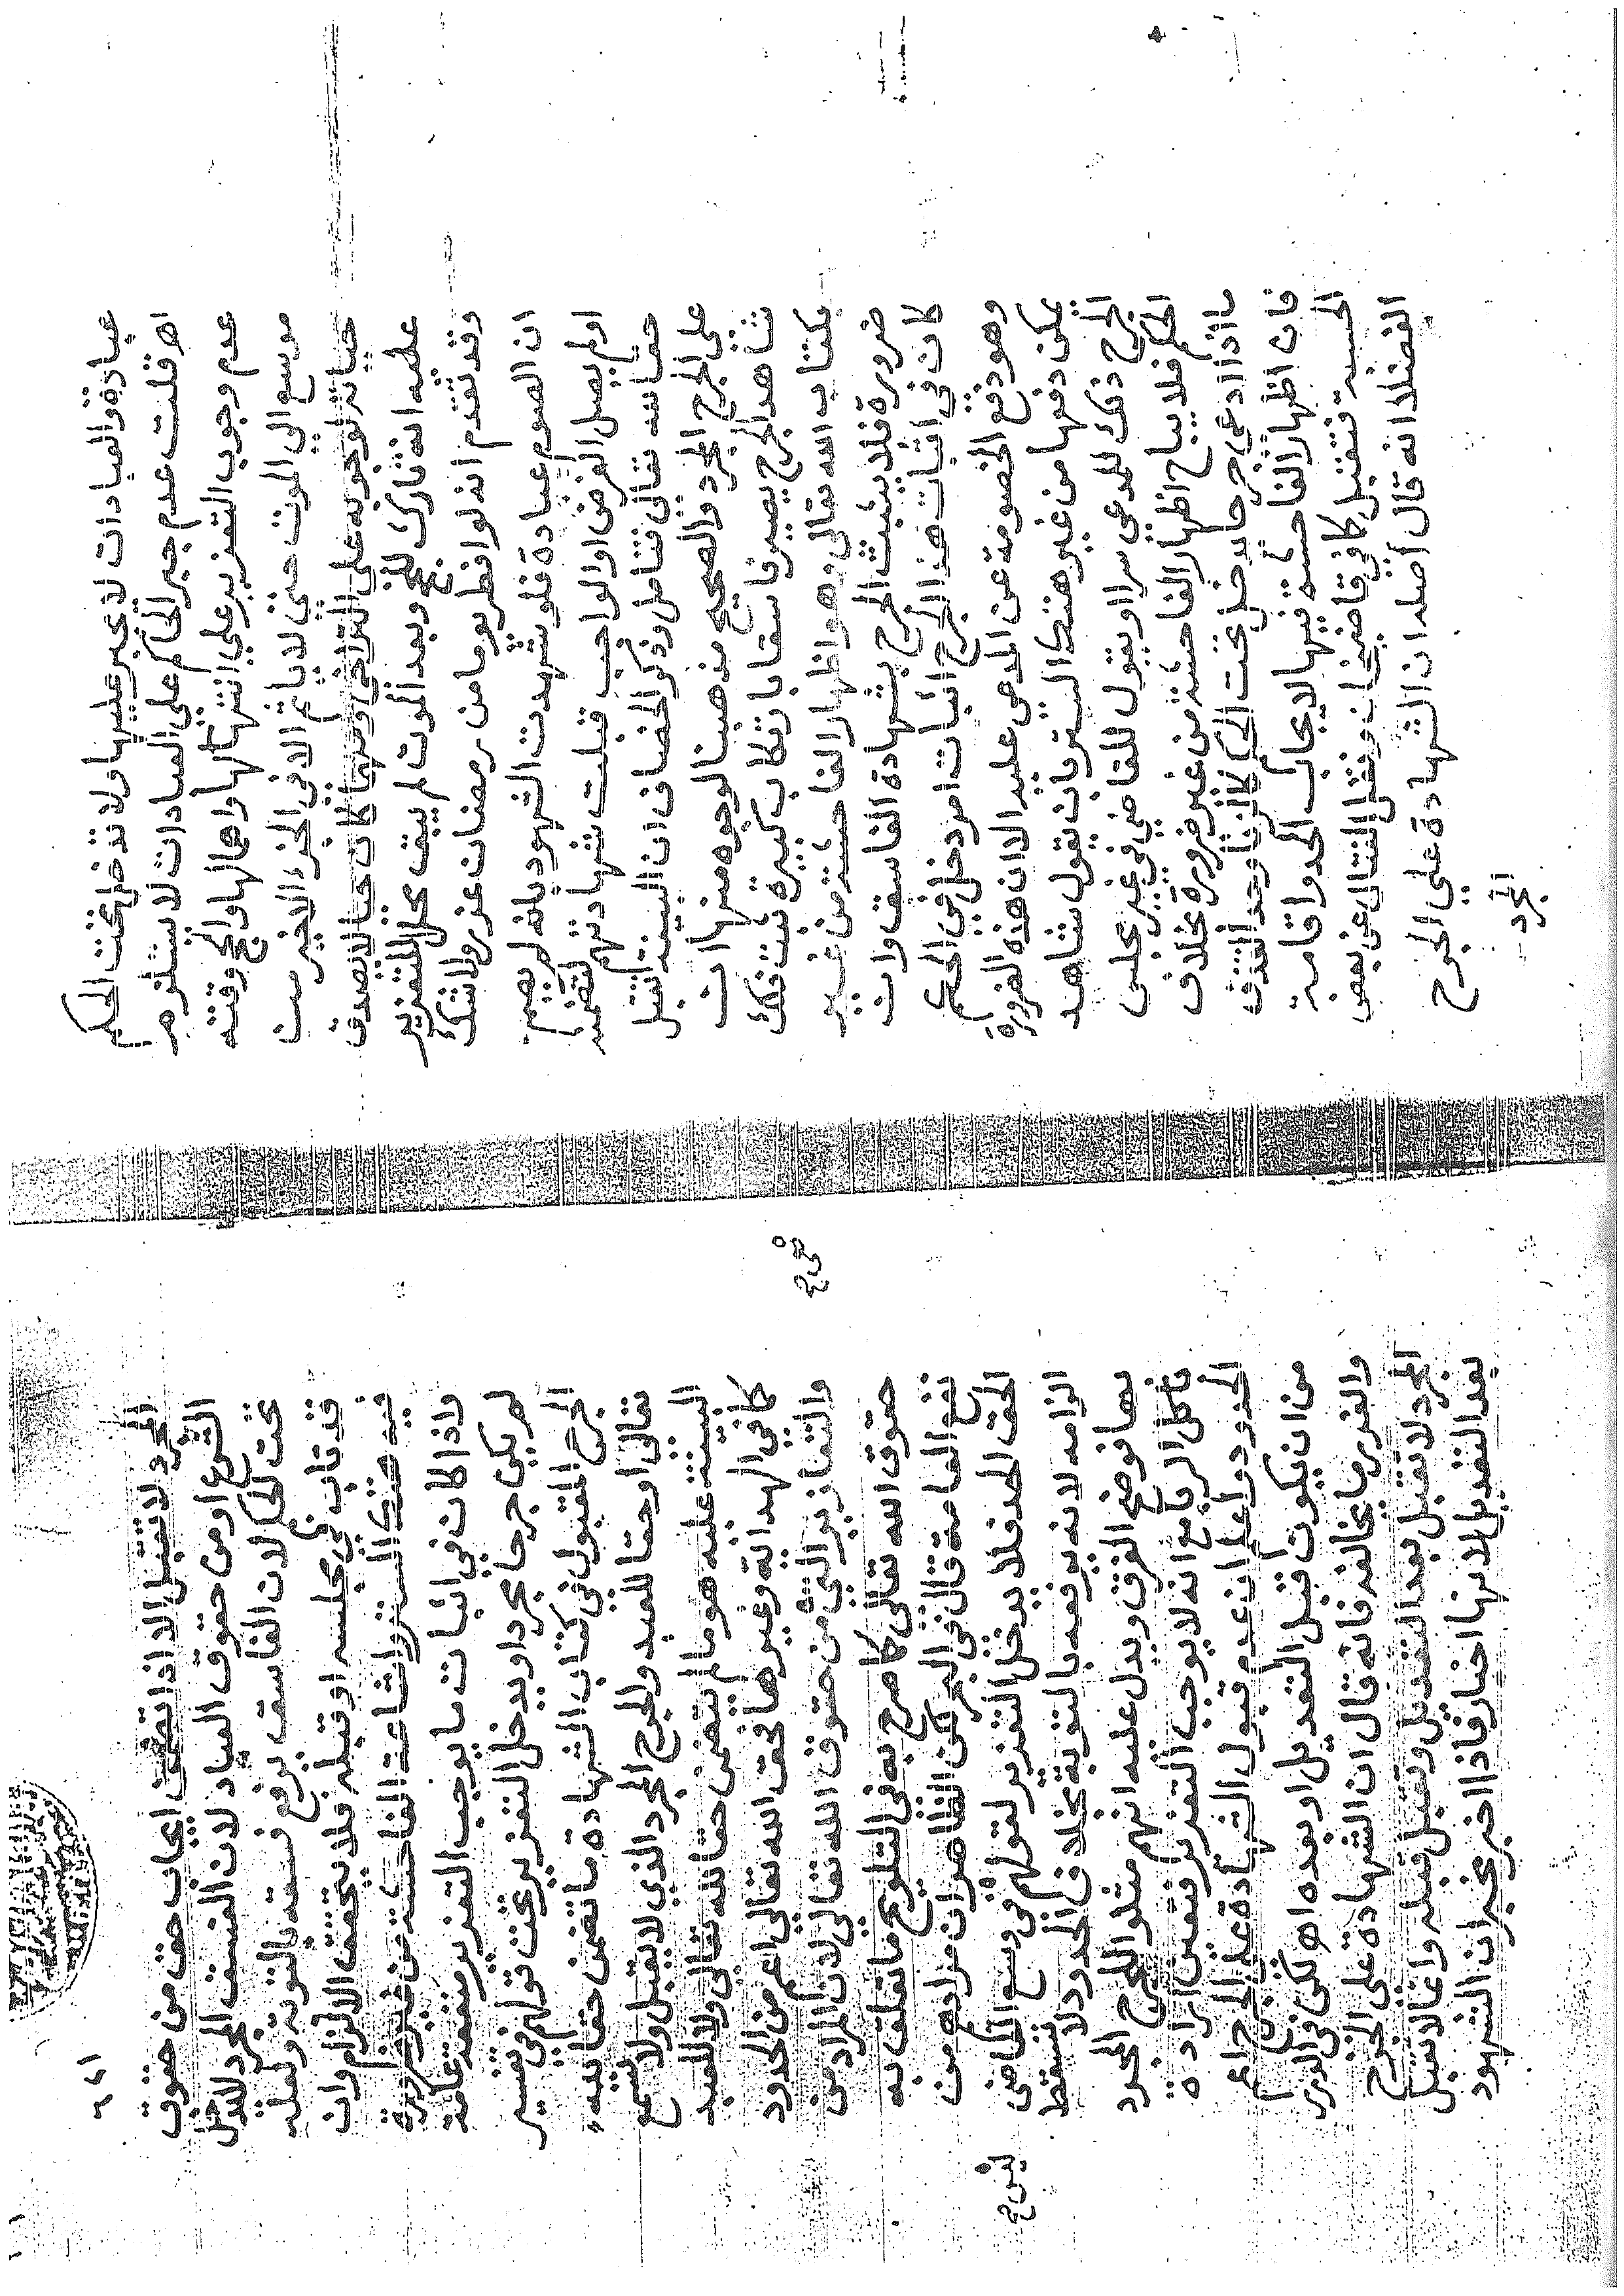 عبادة والعبادات لا تجبر عليها ولا تدخل تحت الحكم
اهـ قلت عدم جبر الحاكم على العبادات لا يستلزم
عدم وجوب التعزير على انتهاكها واهمالها والحج وقته
موسع الى الموت حتى لا ياثم الا فى الجزء الاخير من
حياته لوجوبه على التراخى ومهما كان حيا لا يصدق
عليه انه تارك للحج وبعد الموت لم يبق محل للتعزير
وقد تقدم انه لو افطر يوما من رمضان عزر ولا شك
ان الصوم عبادة فلو شهدت الشهود بانه لم يصم
او لم يصل الفرض او الواجب قبلت شهادتهم لتضمنه
حقا لله تعالى فتامل وذكر الخصاف ان البينة تقبل
على الجرح المجرد والصحيح مذهبنا لوجوه منها ان
شاهد الجرح يصير فاسقا بارتكاب كبيرة ثبت ذلك
بكتاب الله تعالى وهو اظهار الفاحشة من غير
ضرورة فلا يثبت الجرح بشهادة الفاسق وان
كان فى اثبات هذا الجرح اثبات امر دخل فى الحكم
وهو دفع الخصومة عن المدعى عليه الا ان هذه الضرورة
يمكن دفعها من غير هتك الستر بان يقول شاهد
الجرح ذلك للمدعى سرا او يقول للقاضى فى غير مجلس
الحكم فلا يباح اظهار الفاحشة من غير ضرورة بخلاف
ما اذا ادعى جرحا يدخل تحت الحكم كالزنا وحد القذف
فان اظهار الفاحشة فيها لايجاب الحد واقامة
الحسبة فتقبل كافى قاضيخان ونقل القتالى عن بعض
الفضلا انه قال أصله ان الشهادة على الجرح
المجرد
المجرد لا تقبل الا اذا تضمنت ايجاب حق من حقوق
الشرع او من حقوق العباد لان الفسق المجرد لا يدخل
تحت الحكم لان الفاسق يرفع فسقه بالتوبة ولعله
قد تاب فى مجلسه او قبله فلا يتحقق الالزام وان
فيه هتك الستر واشاعة الفاحشة من غير ضرورة
واذا كان فى اثبات ما يوجب التعزير منفعة عامة
لم يكن جرحا مجردا ويدخل التعزير تحت قولهم فى تفسير
الجرح المقبول فى كتاب الشهادة ما تضمن حقا لله
تعالى او حقا للعبد والجرح المجرد الذى لا يقبل ولا تسمع
البينة عليه هو ما لم يتضمن حقا لله تعالى ولا للعبد
كافى الهداية وغيرها فحق الله تعالى اعم من الحدود
والتعازير التى من حقوق الله تعالى لان المراد من
حقوق الله تعالى كما صرح به فى التلويح ما تعلق به
نفع العامة قال فى البحر لكن الظاهر ان مراده من
الحق الحد فلا يدخل التعزير لقولهم ليس فى وسع القاضى
الزامه لانه يوفيه بالتوبة بخلاف الحدود لا تسقط
بها فوضح الفرق ويدل عليه انهم مثلوا للجرح المجرد
باكل الربا مع انه لا يوجب التعزير فتعين ارادة
الحدود واعلم ان عدم قبول الشهادة على الجرح اعم
من ان يكون قبل التعديل او بعده اهـ لكن فى الدرر
والغرر ما يخالفه فانه قال ان الشهادة على الجرح
المجرد لا تقبل بعد التعديل وتقبل قبله وانما لا تقبل
بعد التعديل لانها اخبار فاذا اخبر مخبر ان الشهود